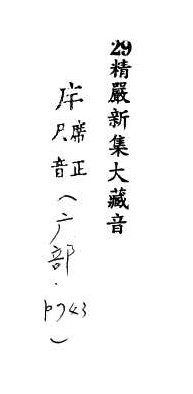 29精嚴新集大藏音
席正
尺音
（广部．p743）